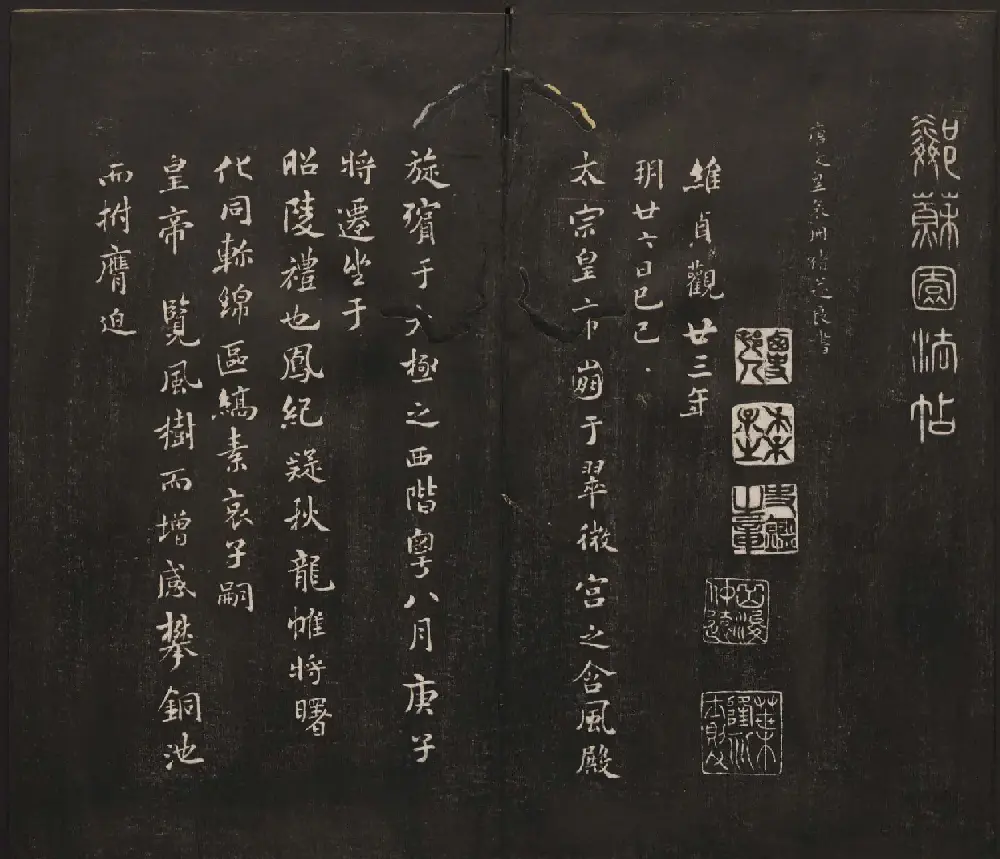 鄰蘇園法帖
唐文皇哀冊褚遂良書
維貞觀廿三年
玥廿六日己巳
太宗皇帝崩于翠微宮之含風殿
旋殯于太極之西階粵八月庚子
將遷坐于
昭陵禮也鳳紀疑秋龍帷將曙
化同軫綿區縞素哀子嗣
皇帝 覽風樹而增感攀銅池
而拊膺迫